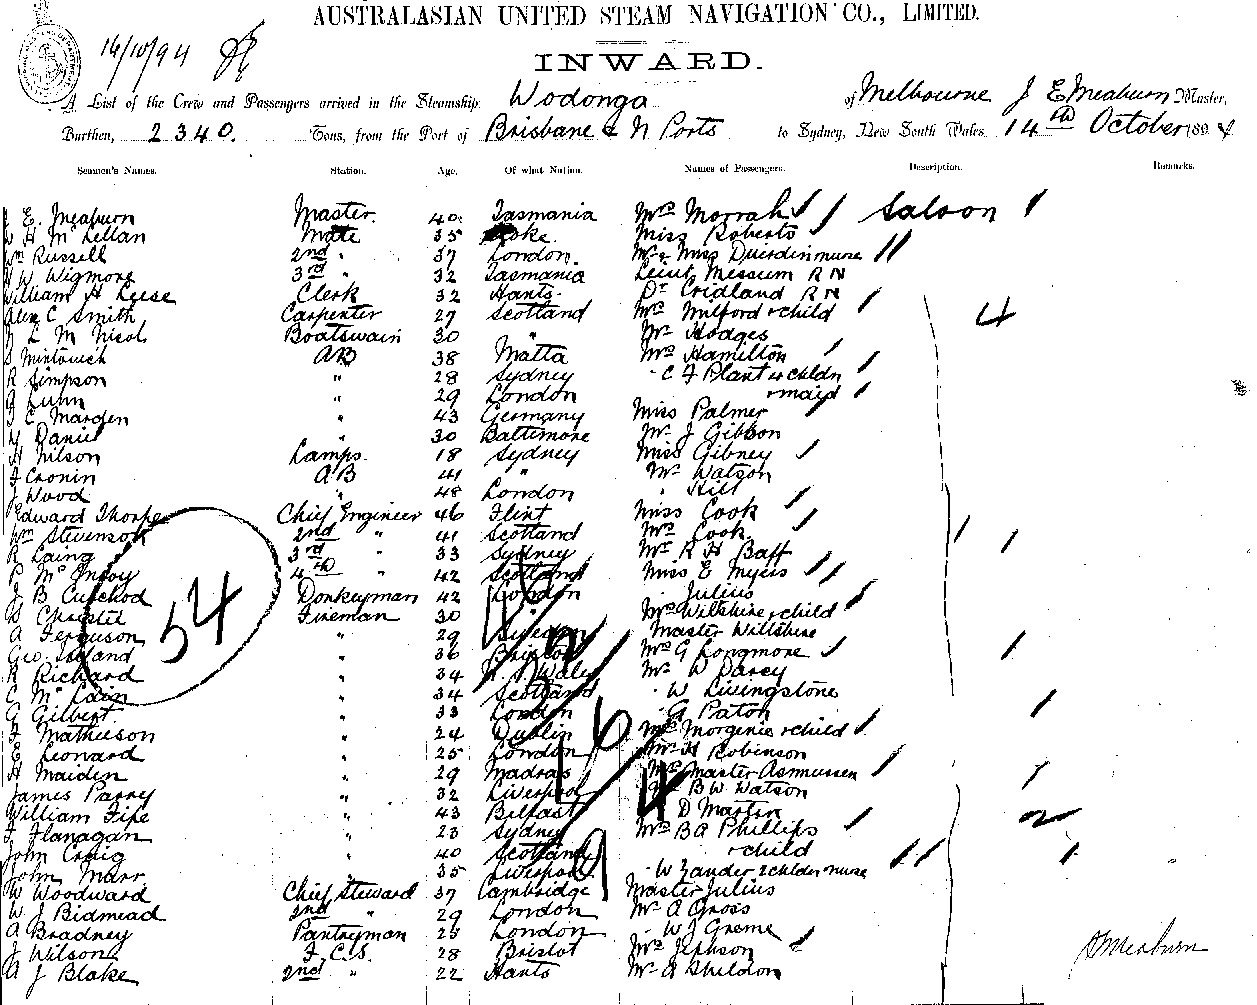 AUSTRALASIAN UNITED STEAM NAVIGATION CO., LIMITED.
14/10/94
INWARD.
A List of the Crew and Passengers arrived in the Steamship Wodonga of Melbourne J E Meaburn Master,
Burthen, 2340. Tons, from the Port of Brisbane & N Ports to Sydney, New South Wales, 14th October 1894
Seamen's Names. Station. Age. Of what Nation. Names of Passengers. Description. Remarks.
J E. Meaburn Master. 40 Tasmania Mrs Morrah Saloon
W H McLellan Mate 35 Miss Roberts
Wm Russell 2nd " 37 London Mr & Miss nurse
H W Wigmore 3rd " 32 Tasmania Lieut Messum RN
William H Leese Clerk 32 Hants Dr Cridland RN
Alex C Smith Carpenter 27 Scotland Mrs Milford & child 4
L M Nicol Boatswain 30 " Mr Hodges
S AB 38 Malta Mrs Hamilton
R Simpson " 28 Sydney " C F Plant & childn
" 29 London & maid
F C Marden " 43 Germany Miss Palmer
Daniel " 30 Baltimore Mr J Gibbon
H Nilson Lamps. 18 Sydney Miss Gibney
F Cronin AB 41 " Mr Watson
J Wood " 48 London " Hill
Edward Thorpe Chief Engineer 46 Flint Miss Cook
Wm Stevenson 2nd " 41 Scotland Mrs Cook
R Laing 3rd " 33 Sydney Mr R H Baff
P McEnroy 4th " 42 Scotland Miss E Myers
J B Donkeyman 42 London " Julius
Christie Fireman 30 " Mrs Wiltshire & child
A Ferguson " 29 Sweden Master Wiltshire
54
Geo. Island " 36 Bristol Mrs G Longmore
R Richard " 34 N. S. Wales Mr W Darcy
C McLain " 34 Scotland " W Livingstone
G Gilbert " 33 London " G Paton
F Mathieson " 24 Dublin Mrs Morgenie & child
E Leonard " 25 London Mr H Robinson
H Maiden " 29 Madras Mrs & Master Asmussen
James Parry " 32 Liverpool Mr B W Watson
William Fife " 43 Belfast " D Martin
F Flanagan " 23 Sydney Mrs B A Phillips
John Craig " 40 Scotland & child
John Marr " 35 Liverpool " W Zander 2 childn nurse
W Woodward Chief Steward 37 Cambridge Master Julius
W J Bidmead 2nd " 29 London Mr A Gross
A Bradney Pantryman 25 London " W J Greme
J Wilson F.C.S. 28 Bristol Mrs Jephson
A J Blake 2nd " 22 Hants Mr A Sheldon
J Meaburn